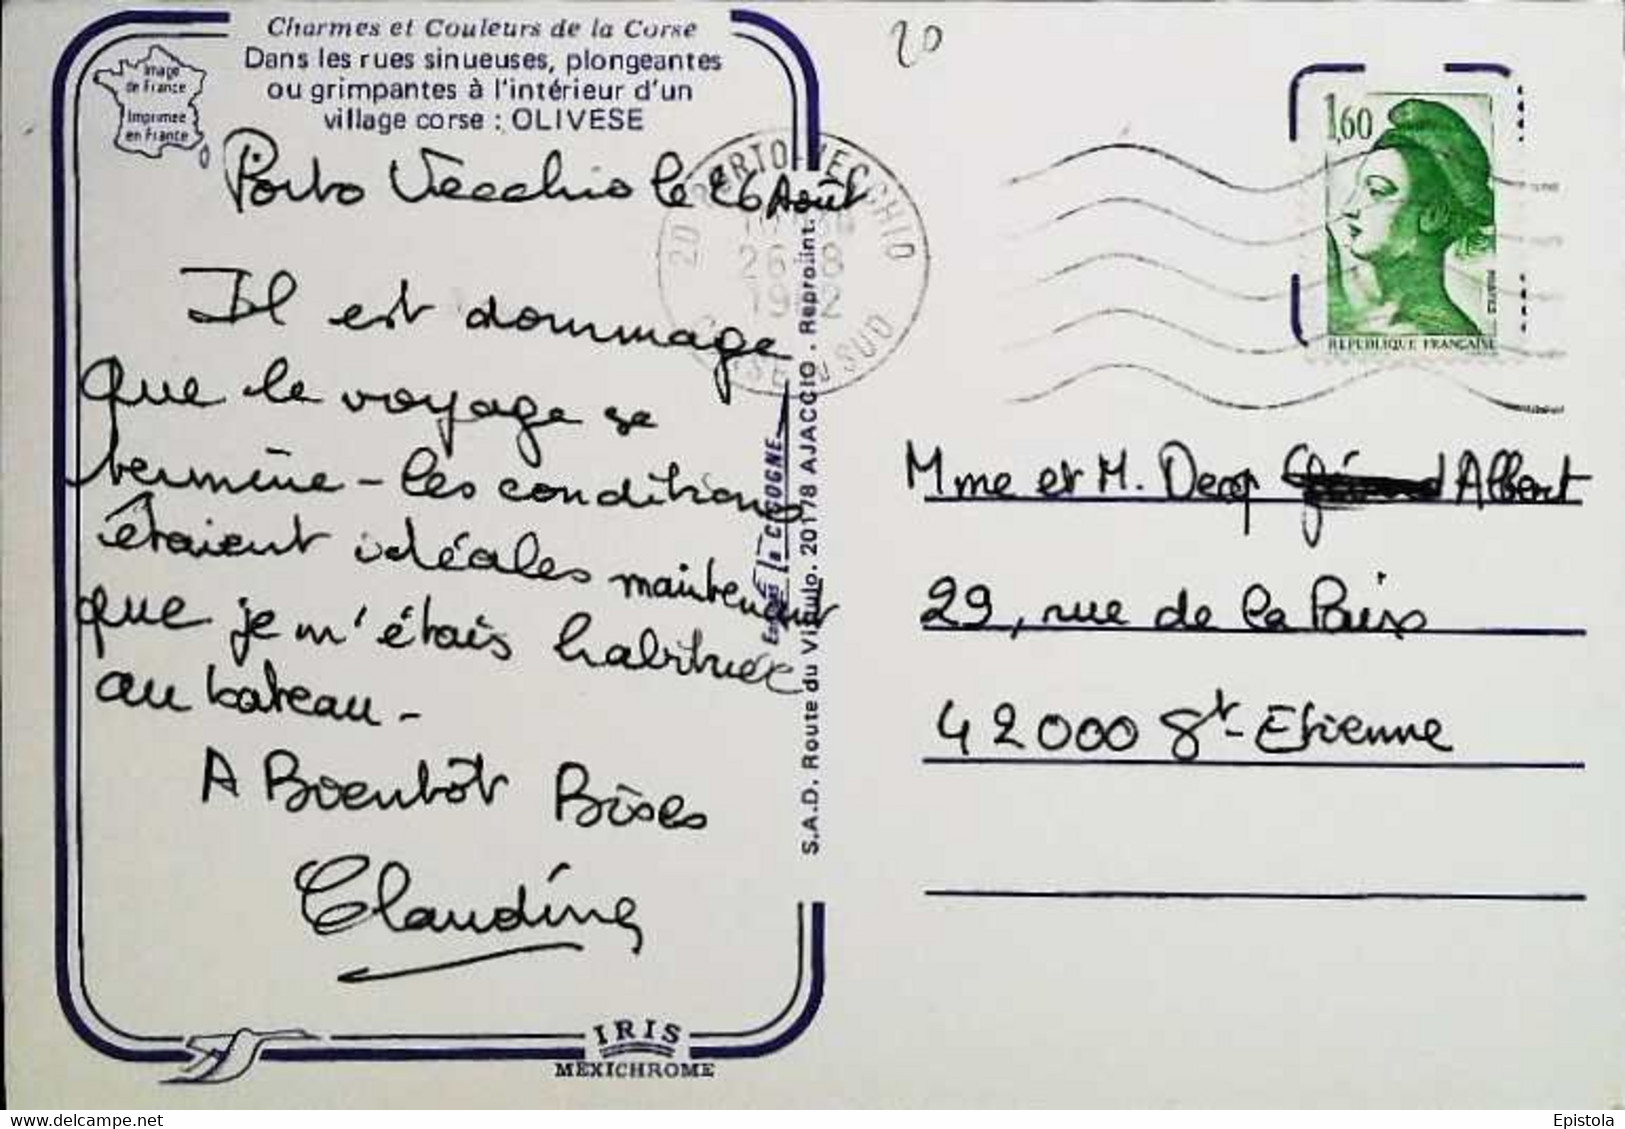 Charmes et Couleurs de la Corse
Dans les rues sinueuses, plongeantes
ou grimpantes à l'intérieur d'un
village corse : OLIVESE
Image
de France
Imprimée
en France
20
Porto Vecchio le 26 Août
Il est dommage
que le voyage se
termine - les conditions
étaient idéales maintenant
que je m'étais habituée
au bateau -
A Bientôt Bises
Claudine
IRIS
MEXICHROME
20 PORTO-VECCHIO
26-8
CORSE DU SUD
Editions la CIGOGNE
S.A.D. Route du Vittulo. 20178 AJACCIO. Reproint.
1,60
REPUBLIQUE FRANÇAISE
Mme et M. Albert
29, rue de la Paix
42000 St-Etienne
delcampe.net
Epistola